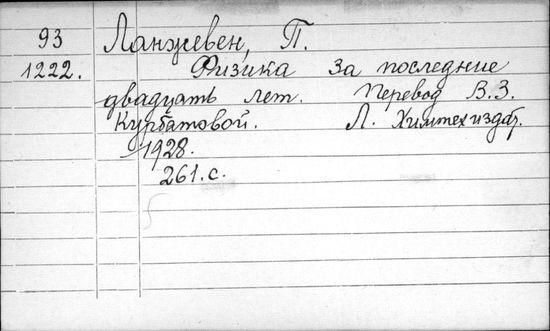 93 Ланжевен, П.
1222. Физика за последние
двадцать лет. Перевод В.З.
Курбатовой. Л. Химтехиздат,
1928.
261.с.